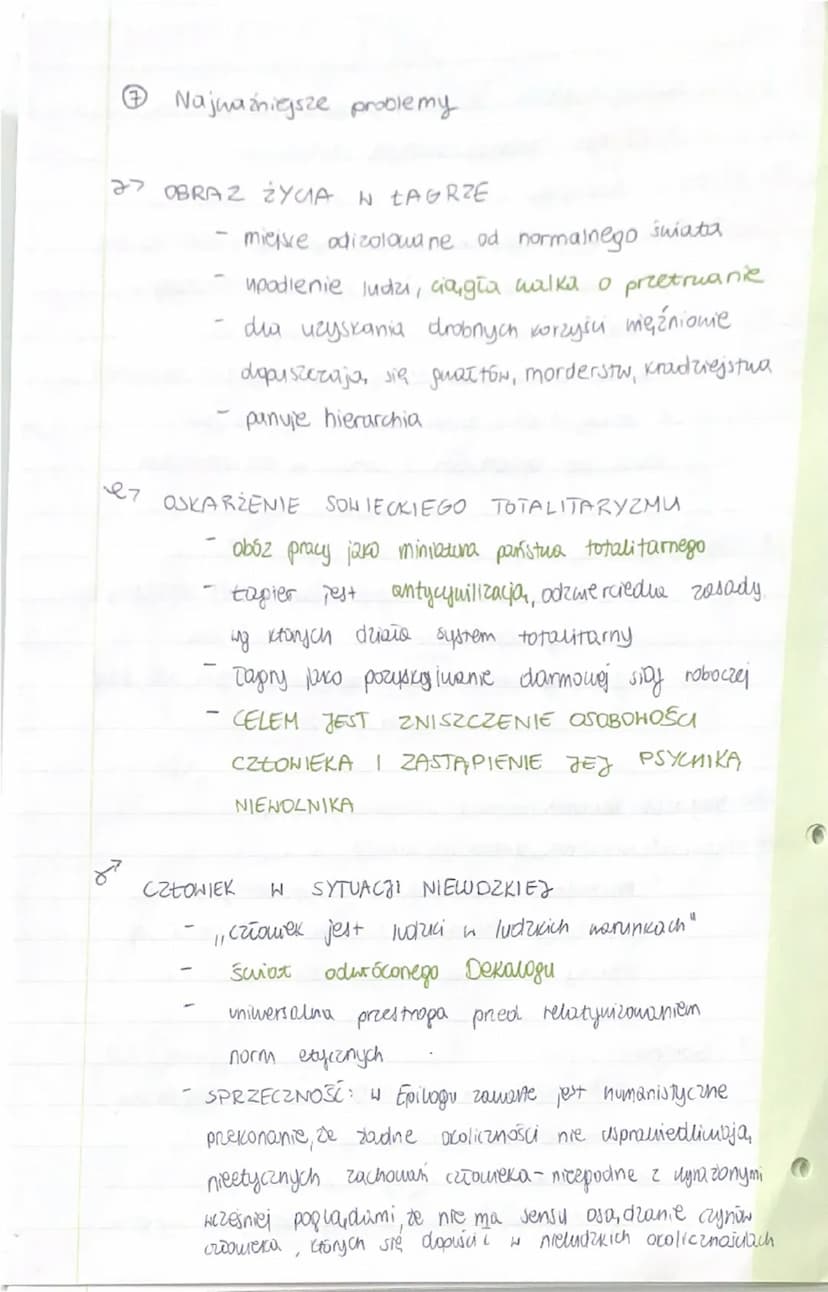 ⑦ Najważniejsze problemy
OBRAZ ŻYCIA W ŁAGRZE
- miejsce odizolowane od normalnego świata
- upodlenie ludzi, ciągła walka o przetrwanie
- dla uzyskania drobnych korzyści więźniowie
dopuszczają się gwałtów, morderstw, kradziejstwa
- panuje hierarchia
OSKARŻENIE SOWIECKIEGO TOTALITARYZMU
- obóz pracy jako miniatura państwa totalitarnego
- łagier jest antycywilizacją, odzwierciedla zasady
wg których działa system totalitarny
- łagry jako pozyskiwanie darmowej siły roboczej
- CELEM JEST ZNISZCZENIE OSOBOWOŚCI
CZŁOWIEKA I ZASTĄPIENIE JEJ PSYCHIKĄ
NIEWOLNIKA
CZŁOWIEK W SYTUACJI NIELUDZKIEJ
- „człowiek jest ludzki w ludzkich warunkach"
- świat odwróconego Dekalogu
- uniwersalna przestroga przed relatywizowaniem
norm etycznych
- SPRZECZNOŚĆ: w Epilogu zawarte jest humanistyczne
przekonanie, że żadne okoliczności nie usprawiedliwiają
nieetycznych zachowań człowieka - niezgodne z wyrażonymi
wcześniej poglądami, że nie ma sensu osądzanie czynów
człowieka, których się dopuścił w nieludzkich okolicznościach